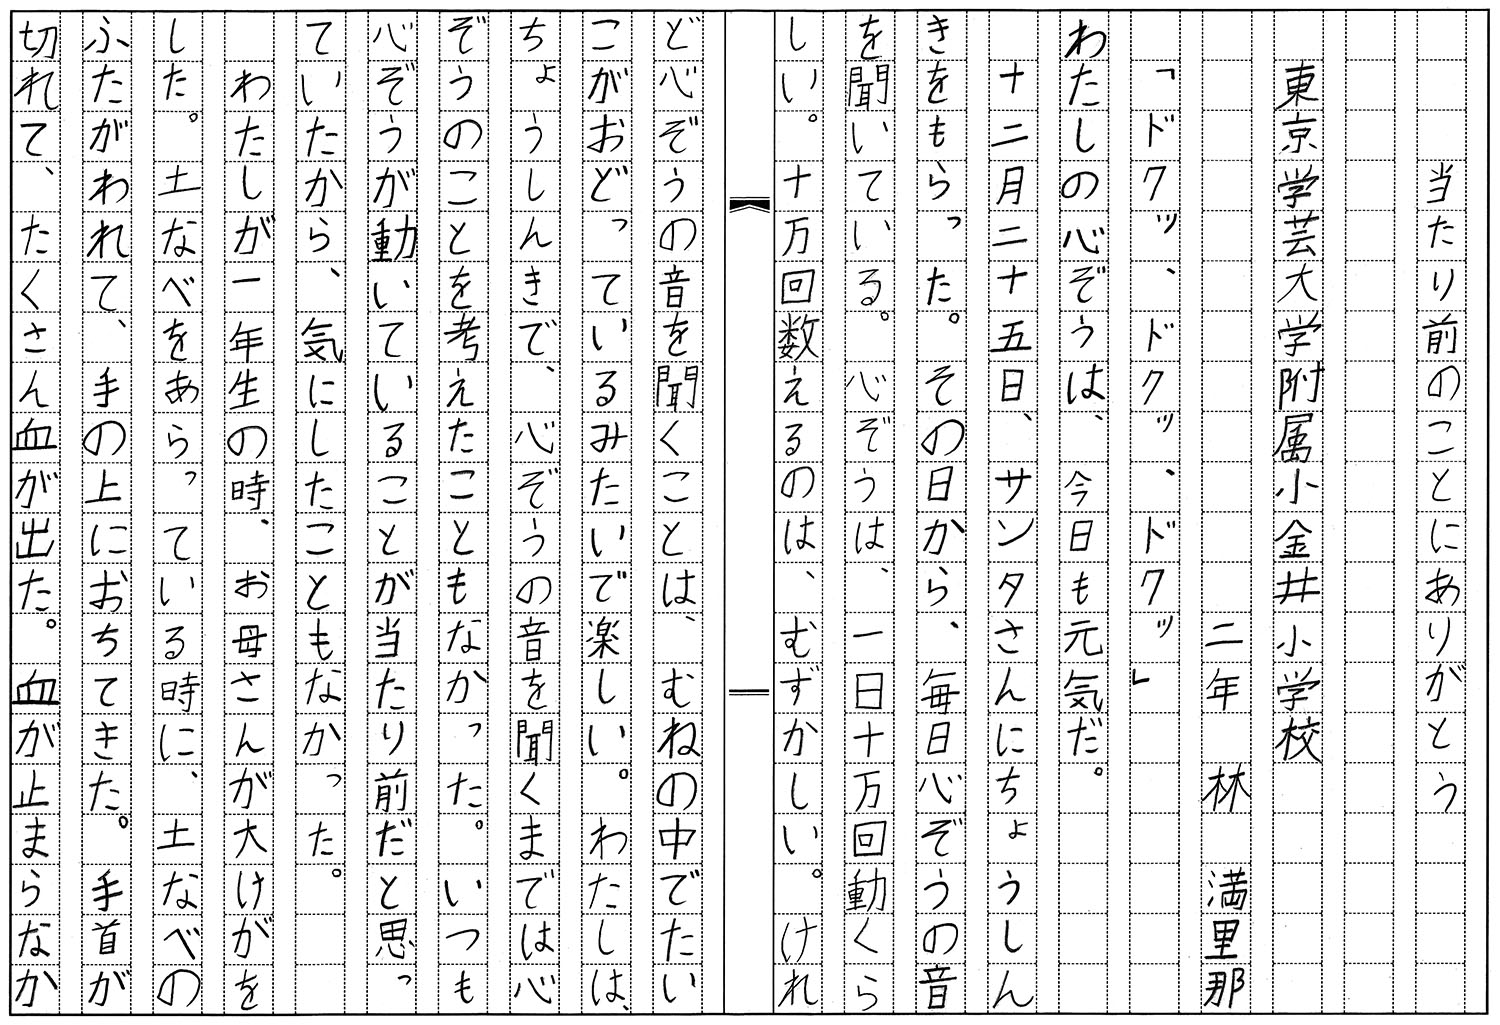 当たり前のことにありがとう
東京学芸大学附属小金井小学校
二年 林 満里那
「ドクッ、ドクッ、ドクッ」
わたしの心ぞうは、今日も元気だ。
十二月二十五日、サンタさんにちょうしん
きをもらった。その日から、毎日心ぞうの音
を聞いている。心ぞうは、一日十万回動くら
しい。十万回数えるのは、むずかしい。けれ
ど心ぞうの音を聞くことは、むねの中でたい
こがおどっているみたいで楽しい。わたしは、
ちょうしんきで、心ぞうの音を聞くまでは心
ぞうのことを考えたこともなかった。いつも
心ぞうが動いていることが当たり前だと思っ
ていたから、気にしたこともなかった。
わたしが一年生の時、お母さんが大けがを
した。土なべをあらっている時に、土なべの
ふたがわれて、手の上におちてきた。手首が
切れて、たくさん血が出た。血が止まらなか